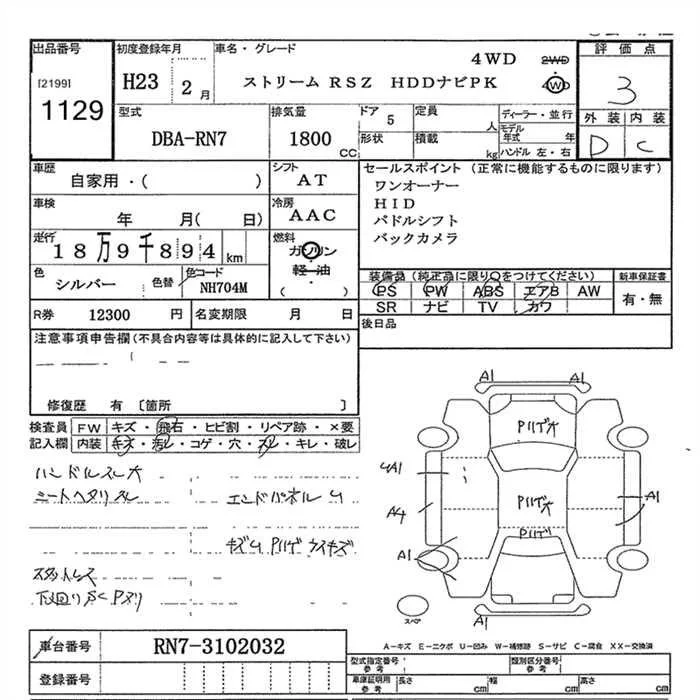 出品番号
[2199]
1129
初度登録年月
H23 2月
車名・グレード
4WD 2WD
ストリーム RSZ HDDナビPK 4WD
評価点
3
外装 内装
D C
型式
DBA-RN7
排気量
1800
CC
ドア 5
形状
定員 人
積載 kg
ディーラー・並行
モデル年式 年
ハンドル 左・右
車歴
自家用・( )
シフト
AT
セールスポイント (正常に機能するものに限ります)
ワンオーナー
HID
パドルシフト
バックカメラ
車検
年 月( 日)
冷房
AAC
走行
18万9千894 km
燃料
ガソリン
軽・油
( )
色
シルバー
色替
色コード
NH704M
装備品(純正品に限り○をつけてください)
PS PW ABS エアB AW
SR ナビ TV カワ
新車保証書
有・無
R券 12300 円
名変期限 月 日
後日品
注意事項申告欄(不具合内容等は具体的に記入して下さい)
修復歴 有 〔箇所 〕
検査員 FW キズ・飛石・ヒビ割・リペア跡・×要
記入欄 内装 キズ・汚レ・コゲ・穴・スレ・キレ・破レ
ハンドルスレ大
シートヘタリスレ
エンドパネルU
スタットレス
下廻りS
A1 A1
Pハゲ大
4A1
Pハゲ大
A1
A4
Pハゲ
A1
A1
スペア
A-キズ E-エクボ U-凹み W-補修跡 S-サビ C-腐食 XX-交換済
車台番号 RN7-3102032
登録番号
型式指定番号 参考
類別区分番号 参考
車庫証明用 参考
長さ cm
幅 cm
高さ cm